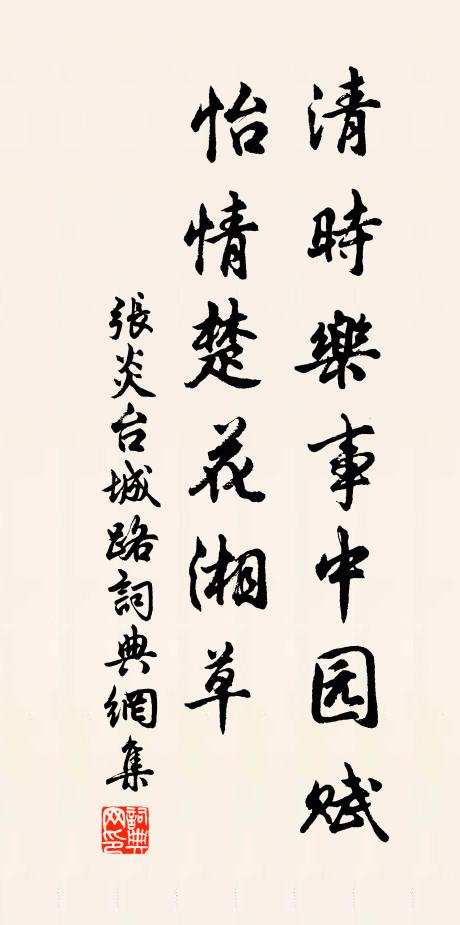 清時樂事中园賦
怡情楚花湘草
張炎台城路詞典網集
詞典網印